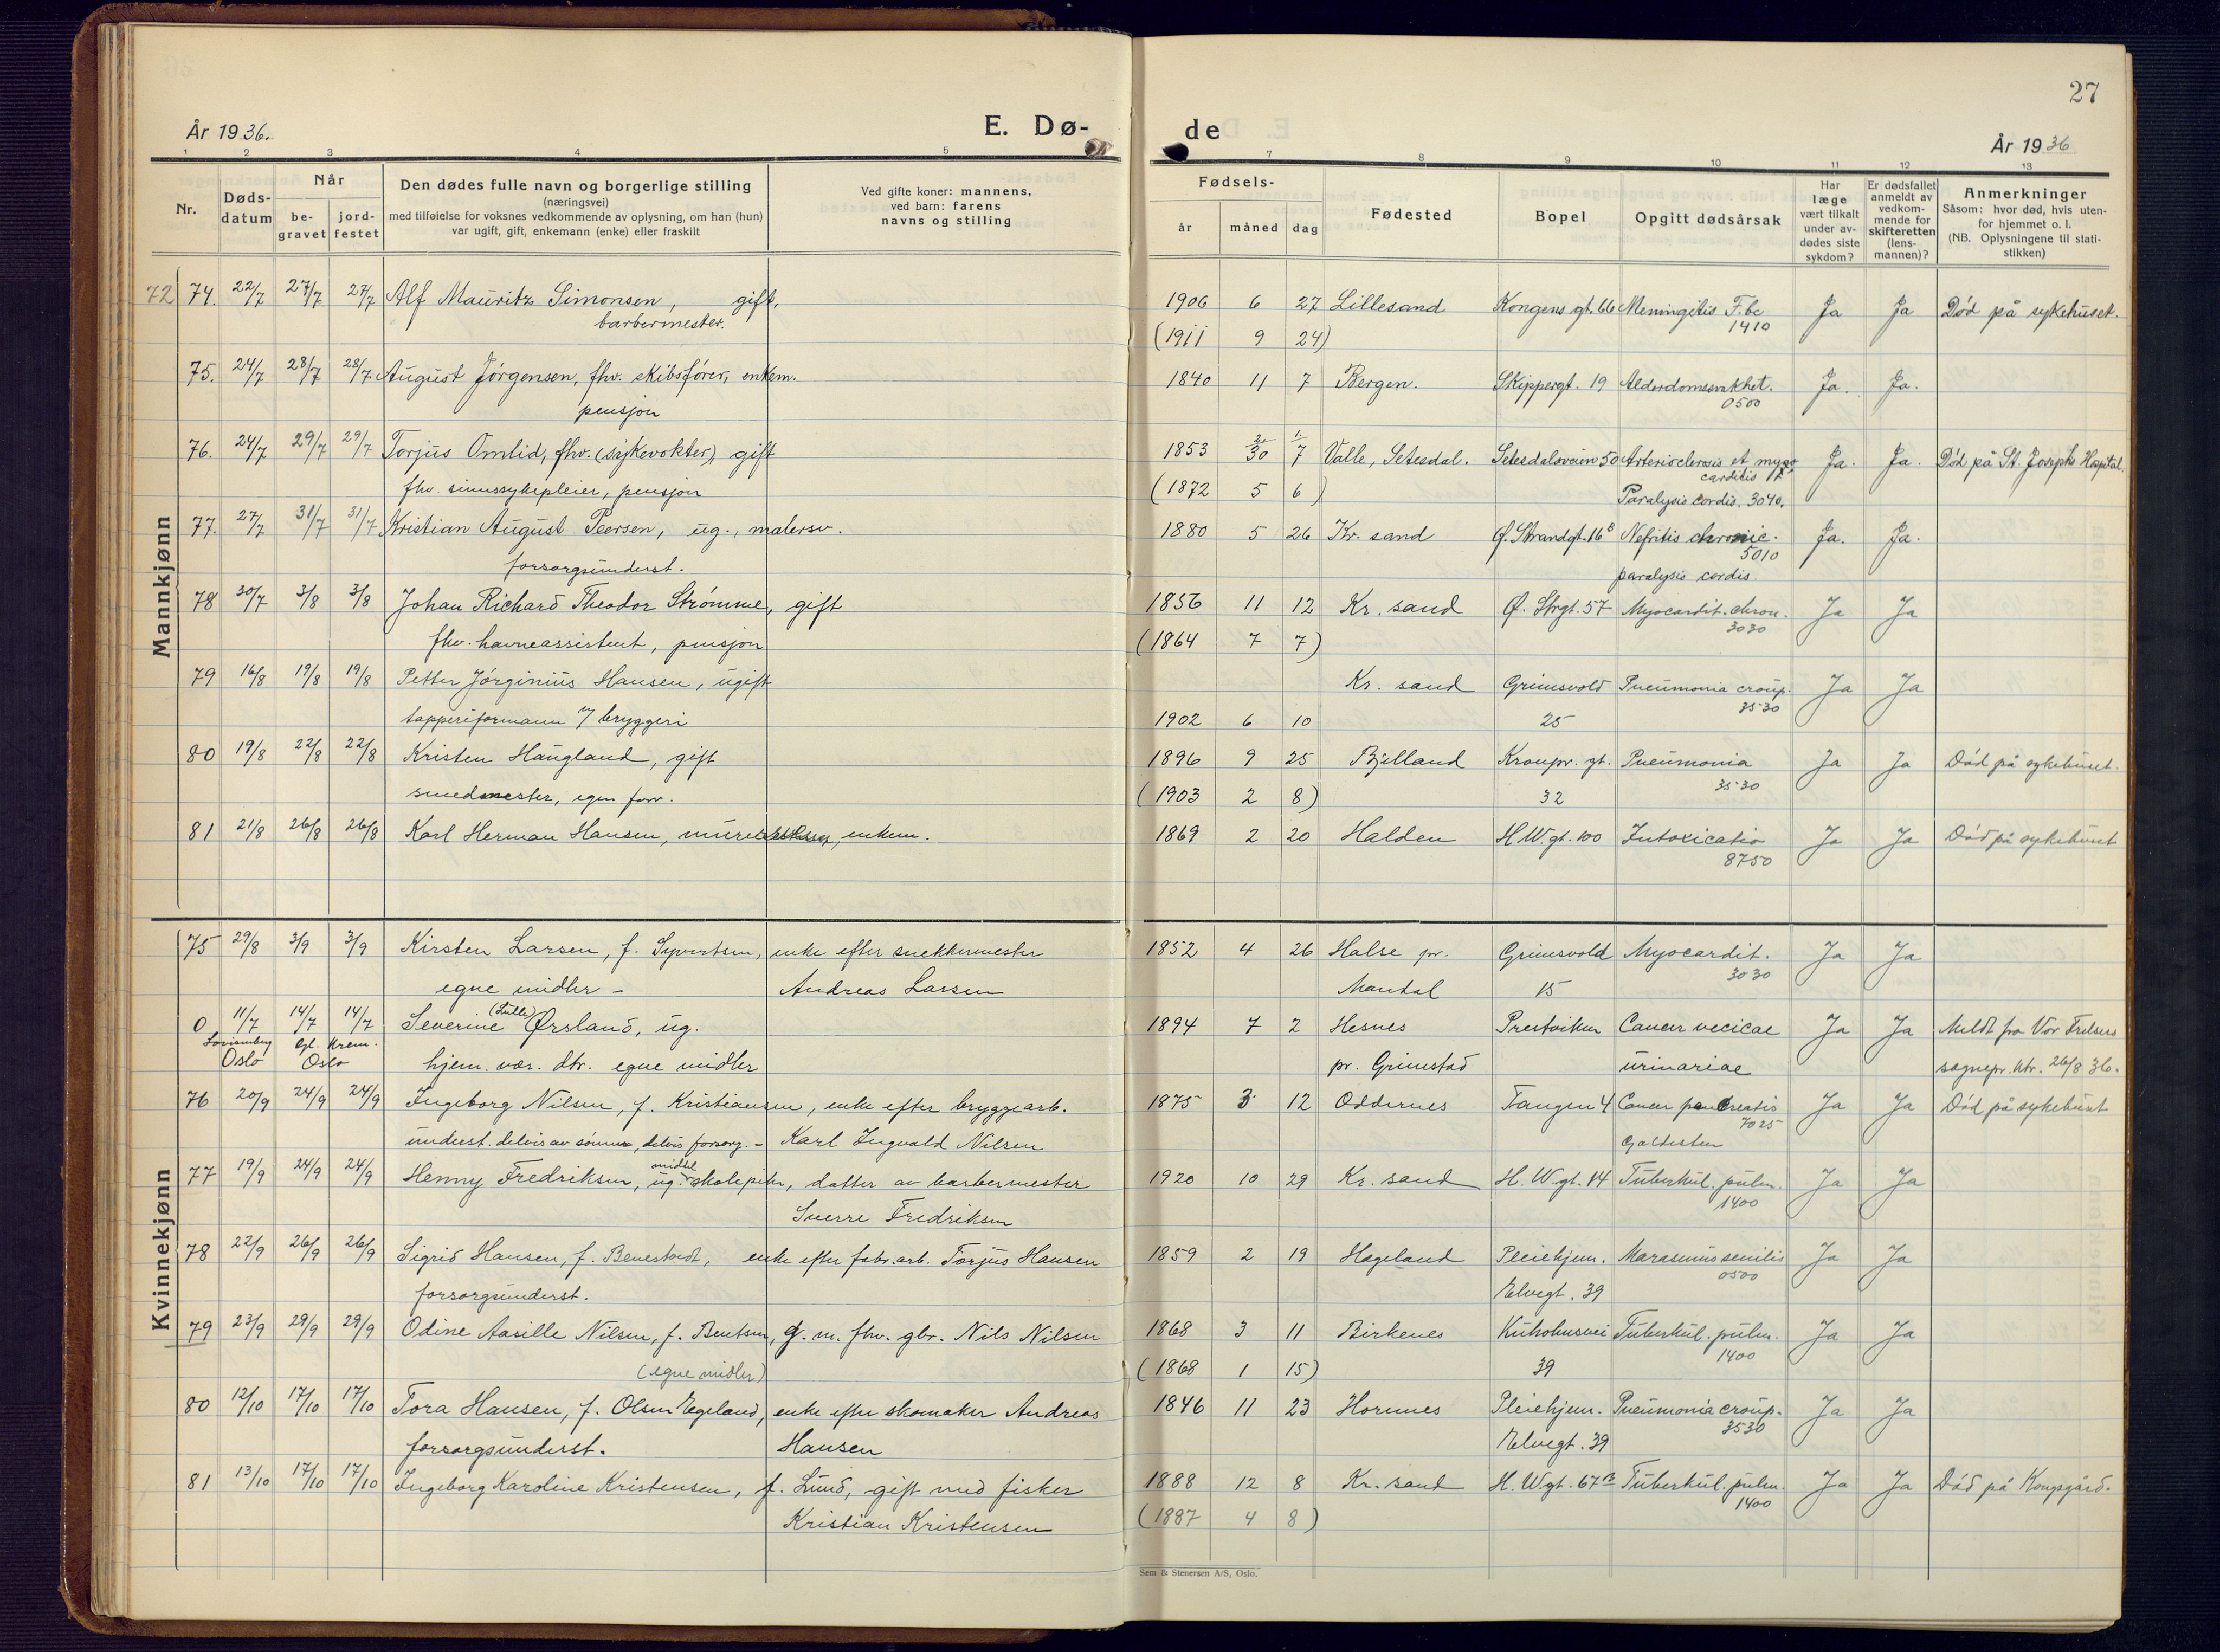 27
År 1936.
E. Dø-
de
År 1936
1 2 3 4 5
7 8 9 10 11 12 13
Nr.
Døds-
datum
Når
be-
gravet
jord-
festet
Den dødes fulle navn og borgerlige stilling
(næringsvei)
med tilføielse for voksnes vedkommende av oplysning, om han (hun)
var ugift, gift, enkemann (enke) eller fraskilt
Ved gifte koner: mannens,
ved barn: farens
navns og stilling
Fødsels-
år måned dag
Fødested
Bopel
Opgitt dødsårsak
Har
læge
vært tilkalt
under av-
dødes siste
sykdom?
Er dødsfallet
anmeldt av
vedkom-
mende for
skifteretten
(lens-
mannen)?
Anmerkninger
Såsom: hvor død, hvis uten-
for hjemmet o. l.
(NB. Oplysningene til stati-
stikken)
Mannkjønn
72 74. 22/7 27/7 27/7 Alf Mauritz Simonsen, gift, 1906 6 27 Lillesand Kongens gt. 66 Meningitis T.bc Ja Ja Død på sykehuset.
barbermester. 1410
(1911 9 24)
75. 24/7 28/7 28/7 August Jørgensen, fhv. skibsfører, enkem. 1840 11 7 Bergen. Skippergt. 19 Alderdomssvakhet. Ja. Ja.
pensjon 0500
76. 24/7 29/7 29/7 Torjus Omlid, fhv. (sykevokter), gift 1853 30 7 Valle, Setesdal. Setesdalsveien 50 Arteriosclerosis et myo- Ja. Ja. Død på St. Josephs Hospital.
carditis
fhv. sinnssykepleier, pensjon (1872 5 6) Paralysis cordis. 3040.
77. 27/7 31/7 31/7 Kristian August Peersen, ug., malersv. 1880 5 26 Kr. sand Ø. Strandgt. 16 B Nefritis chronic. Ja. Ja.
5010
forsorgsunderst. paralysis cordis.
78 30/7 3/8 3/8 Johan Richard Theodor Strømme, gift 1856 11 12 Kr. sand Ø. Strgt. 57 Myocardit. chron. Ja Ja
3030
fhv. havneassistent, pensjon (1864 7 7)
79 16/8 19/8 19/8 Petter Jørginius Hansen, ugift Kr. sand Grimsvold Pneumonia croup. Ja Ja
3530
tapperiformann v/ bryggeri 1902 6 10 25
80 19/8 22/8 22/8 Kristen Haugland, gift 1896 9 25 Bjelland Kronpr. gt. Pneumonia Ja Ja Død på sykehuset.
3530
smedmester, egen forr. (1903 2 8) 32
81 21/8 26/8 26/8 Karl Herman Hansen, enkem. 1869 2 20 Halden H.W.gt. 100 Intoxicatio Ja Ja Død på sykehuset
8750
Kvinnekjønn
75 29/8 3/9 3/9 Kirsten Larsen, f. Syvertsen, enke efter snekkermester 1852 4 26 Halse pr. Grimsvold Myocardit. Ja Ja
3030
egne midler – Andreas Larsen Mandal 15
0 11/7 14/7 14/7 Severine (Lulle) Ørsland, ug. 1894 7 2 Hesnes Prestviken Cancer vecicae Ja Ja Meldt fra Vor Frelsers
Lovisenberg Gl. Krem.
Oslo Oslo hjem. vær. dtr. egne midler pr. Grimstad urinariae sognepr. ktr. 26/8 36.
76 20/9 24/9 24/9 Ingeborg Nilsen, f. Kristiansen, enke efter bryggearb. 1875 3 12 Oddernes Tangen 4 Cancer pancreatis Ja Ja Død på sykehuset
7025
underst. delvis av sønner, delvis forsorg. – Karl Ingvald Nilsen Galdesten
77 19/9 24/9 24/9 Henny Fredriksen, ug. midsel skolepike, datter av barbermester 1920 10 29 Kr. sand H. W.gt. 14 Tuberkul. pulm. Ja Ja
1400
Sverre Fredriksen
78 22/9 26/9 26/9 Sigrid Hansen, f. Benestvedt, enke efter fabr.arb. Torjus Hansen 1859 2 19 Hægeland Pleiehjem. Marasmus senilis Ja Ja
0500
forsorgsunderst. Elvegt. 39
79 23/9 29/9 29/9 Odine Aasille Nilsen, f. Bentsen, g. m. fhv. gbr. Nils Nilsen 1868 3 11 Birkenes Kuholmsvei Tuberkul. pulm. Ja Ja
1400
(egne midler) (1868 1 15) 39
80 12/10 17/10 17/10 Tora Hansen, f. Olsen Egeland, enke efter skomaker Andreas 1846 11 23 Hornnes Pleiehjem. Pneumonia croup. Ja Ja
3530
forsorgsunderst. Hansen Elvegt. 39
81 13/10 17/10 17/10 Ingeborg Karoline Kristensen, f. Lund, gift med fisker 1888 12 8 Kr. sand H. W.gt. 67 B Tuberkul. pulm. Ja Ja Død på Kongsgård.
1400
Kristian Kristensen (1887 4 8)
Sem & Stenersen A/S, Oslo.